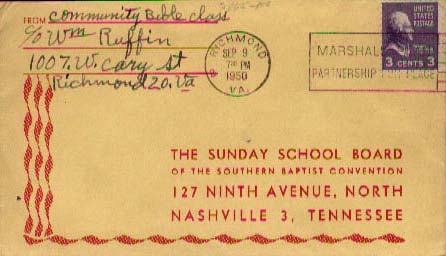 FROM Community Bible Class
c/o Wm Ruffin
1007. W. Cary St
Richmond 20. Va
RICHMOND
SEP 9
7 PM
1950
VA.
MARSHALL
PARTNERSHIP FOR PEACE
UNITED
STATES
POSTAGE
3 CENTS 3
THE SUNDAY SCHOOL BOARD
OF THE SOUTHERN BAPTIST CONVENTION
127 NINTH AVENUE, NORTH
NASHVILLE 3, TENNESSEE